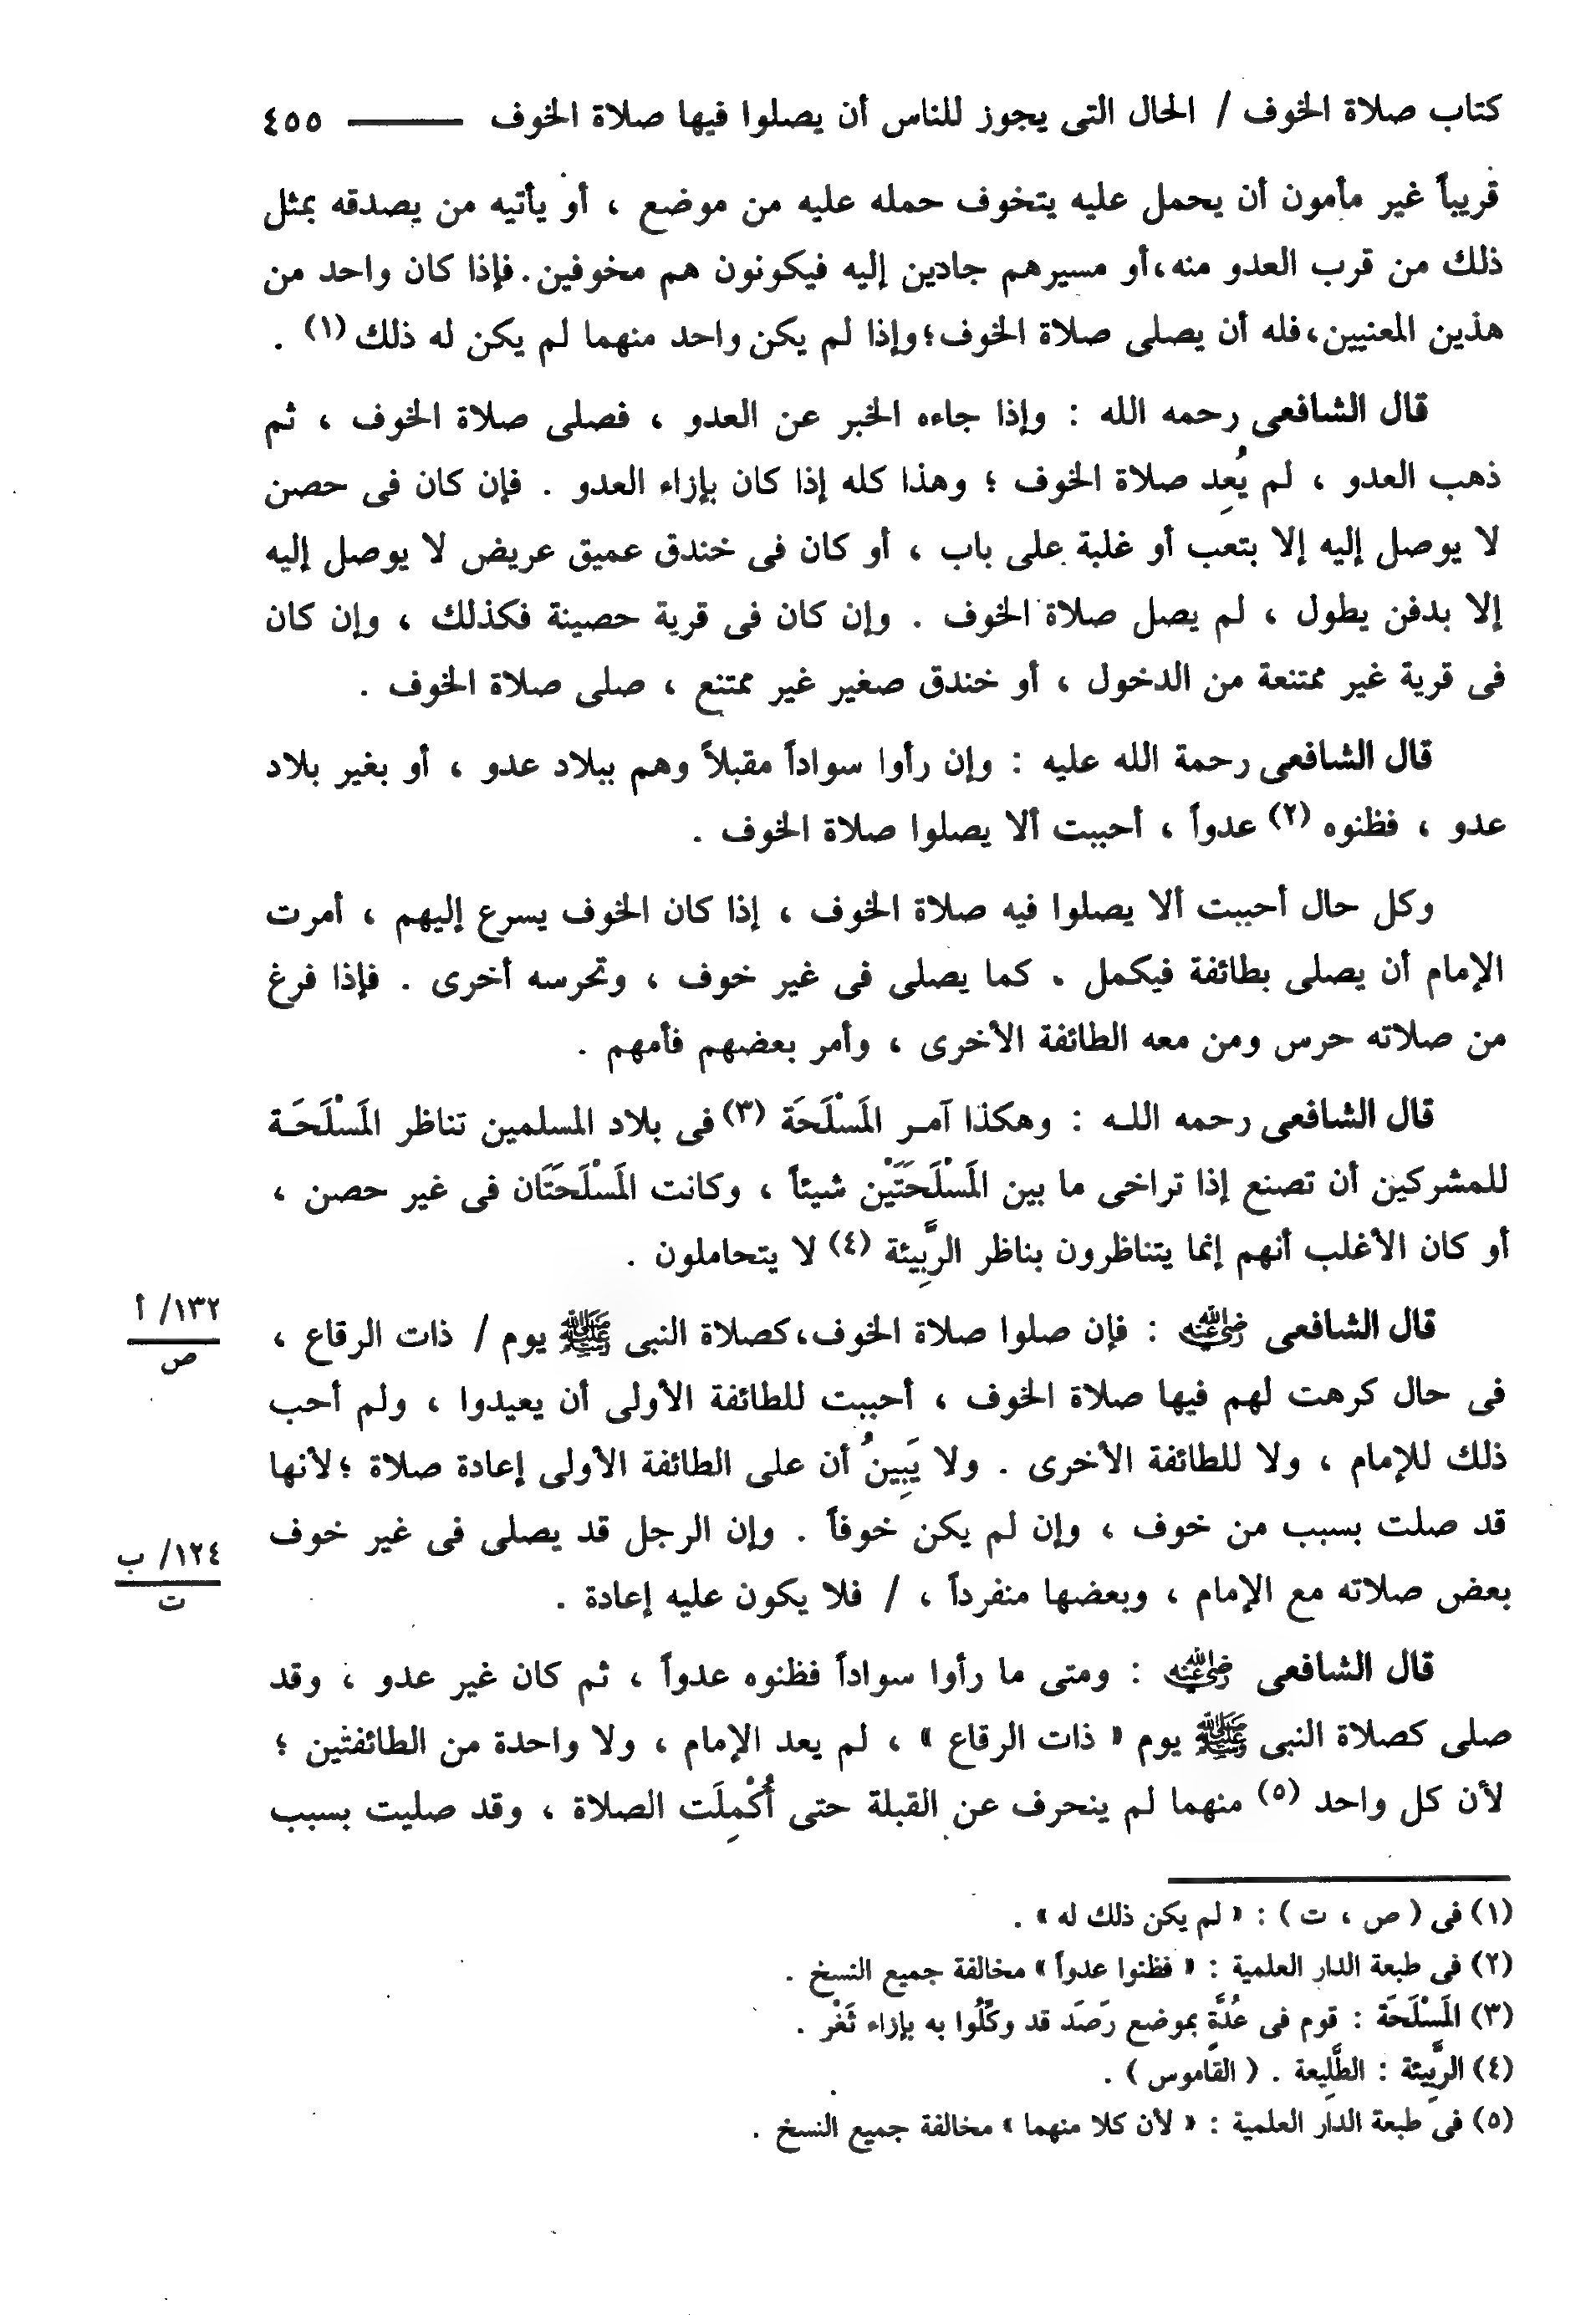 كتاب صلاة الخوف / الحال التى يجوز للناس أن يصلوا فيها صلاة الخوف ــــــ ٤٥٥
قريباً غير مأمون أن يحمل عليه يتخوف حمله عليه من موضع ، أو يأتيه من يصدقه بمثل
ذلك من قرب العدو منه،أو مسيرهم جادين إليه فيكونون هم مخوفين.فإذا كان واحد من
هذين المعنيين،فله أن يصلى صلاة الخوف؛وإذا لم يكن واحد منهما لم يكن له ذلك (١) .
قال الشافعى رحمه الله : وإذا جاءه الخبر عن العدو ، فصلى صلاة الخوف ، ثم
ذهب العدو ، لم يُعِد صلاة الخوف ؛ وهذا كله إذا كان بإزاء العدو . فإن كان فى حصن
لا يوصل إليه إلا بتعب أو غلبة على باب ، أو كان فى خندق عميق عريض لا يوصل إليه
إلا بدفن يطول ، لم يصل صلاة الخوف . وإن كان فى قرية حصينة فكذلك ، وإن كان
فى قرية غير ممتنعة من الدخول ، أو خندق صغير غير ممتنع ، صلى صلاة الخوف .
قال الشافعى رحمة الله عليه : وإن رأوا سواداً مقبلاً وهم ببلاد عدو ، أو بغير بلاد
عدو ، فظنوه (٢) عدواً ، أحببت ألا يصلوا صلاة الخوف .
وكل حال أحببت ألا يصلوا فيه صلاة الخوف ، إذا كان الخوف يسرع إليهم ، أمرت
الإمام أن يصلى بطائفة فيكمل . كما يصلى فى غير خوف ، وتحرسه أخرى . فإذا فرغ
من صلاته حرس ومن معه الطائفة الأخرى ، وأمر بعضهم فأمهم .
قال الشافعى رحمه اللـه : وهكذا آمـر المَسْلَحَة (٣) فى بلاد المسلمين تناظر المَسْلَحَـة
للمشركين أن تصنع إذا تراخى ما بين المَسْلَحَتَيْن شيئاً ، وكانت المَسْلَحَتَان فى غير حصن ،
أو كان الأغلب أنهم إنما يتناظرون بناظر الرَّبِيئة (٤) لا يتحاملون .
قال الشافعى رضي الله عنه : فإن صلوا صلاة الخوف،كصلاة النبى ﷺ يوم / ذات الرقاع ،
١٣٢/ أ
ص
فى حال كرهت لهم فيها صلاة الخوف ، أحببت للطائفة الأولى أن يعيدوا ، ولم أحب
ذلك للإمام ، ولا للطائفة الأخرى . ولا يَبِينُ أن على الطائفة الأولى إعادة صلاة ؛لأنها
قد صلت بسبب من خوف ، وإن لم يكن خوفاً . وإن الرجل قد يصلى فى غير خوف
بعض صلاته مع الإمام ، وبعضها منفرداً ، / فلا يكون عليه إعادة .
١٢٤/ ب
ت
قال الشافعى رضي الله عنه : ومتى ما رأوا سواداً فظنوه عدواً ، ثم كان غير عدو ، وقد
صلى كصلاة النبى ﷺ يوم « ذات الرقاع » ، لم يعد الإمام ، ولا واحدة من الطائفتين ؛
لأن كل واحد (٥) منهما لم ينحرف عن القبلة حتى أُكْمِلَت الصلاة ، وقد صليت بسبب
(١) فى ( ص ، ت ) : « لم يكن ذلك له » .
(٢) فى طبعة الدار العلمية : « فظنوا عدواً » مخالفة جميع النسخ .
(٣) المَسْلَحَة : قوم فى عُدَّةٍ بموضع رَصَد قد وكِّلُوا به بإزاء ثَغْر .
(٤) الرَّبِيئة : الطَّلِيعة . ( القاموس ) .
(٥) فى طبعة الدار العلمية : « لأن كلا منهما » مخالفة جميع النسخ .